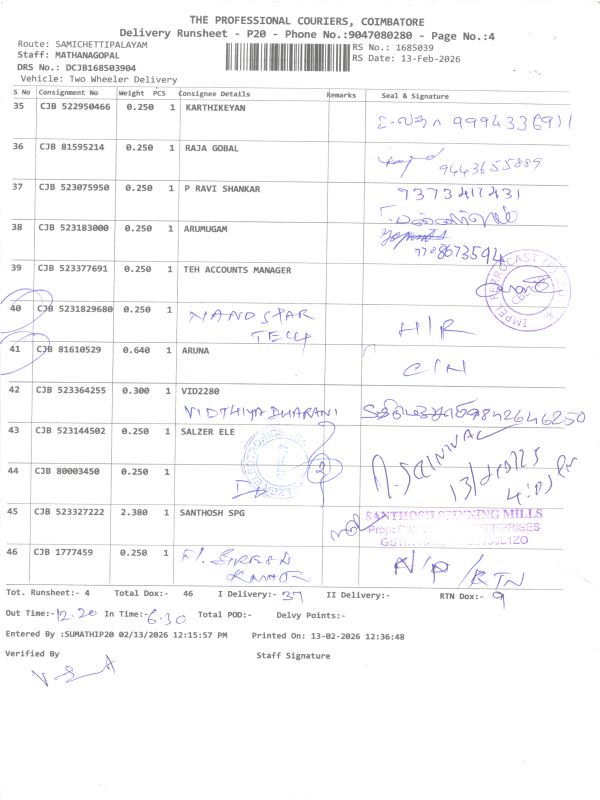 THE PROFESSIONAL COURIERS, COIMBATORE
Delivery Runsheet - P20 - Phone No.:9047080280 - Page No.:4
Route: SAMICHETTIPALAYAM
RS No.: 1685039
Staff: MATHANAGOPAL
RS Date: 13-Feb-2026
DRS No.: DCJB168503904
Vehicle: Two Wheeler Delivery
S No Consignment No Weight PCS Consignee Details Remarks Seal & Signature
35 CJB 522950466 0.250 1 KARTHIKEYAN
9994336911
36 CJB 81595214 0.250 1 RAJA GOBAL
9443655889
37 CJB 523075950 0.250 1 P RAVI SHANKAR
9373412431
38 CJB 523183000 0.250 1 ARUMUGAM
7708673594
39 CJB 523377691 0.250 1 TEH ACCOUNTS MANAGER
IMPEL FERROCAST
40 CJB 5231829680 0.250 1 NANDSTAR
TECH
H/R
41 CJB 81610529 0.640 1 ARUNA
C/N
42 CJB 523364255 0.300 1 VID2280
VIDTHIYA DHARANI
9842646250
43 CJB 523144502 0.250 1 SALZER ELE
44 CJB 80003450 0.250 1
2
45 CJB 523327222 2.380 1 SANTHOSH SPG
SANTHOSH SPINNING MILLS
46 CJB 1777459 0.250 1
N/P / RTN
Tot. Runsheet:- 4 Total Dox:- 46 I Delivery:- 37 II Delivery:- RTN Dox:- 9
Out Time:- 12.20 In Time:- 6.30 Total POD:- Delvy Points:-
Entered By :SUMATHIP20 02/13/2026 12:15:57 PM Printed On: 13-02-2026 12:36:48
Verified By Staff Signature